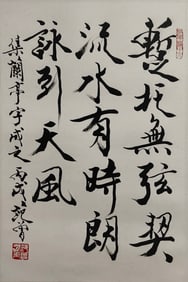 暫托無弦契
流水有時朗
詠引天風
集蘭亭字成之丙戌